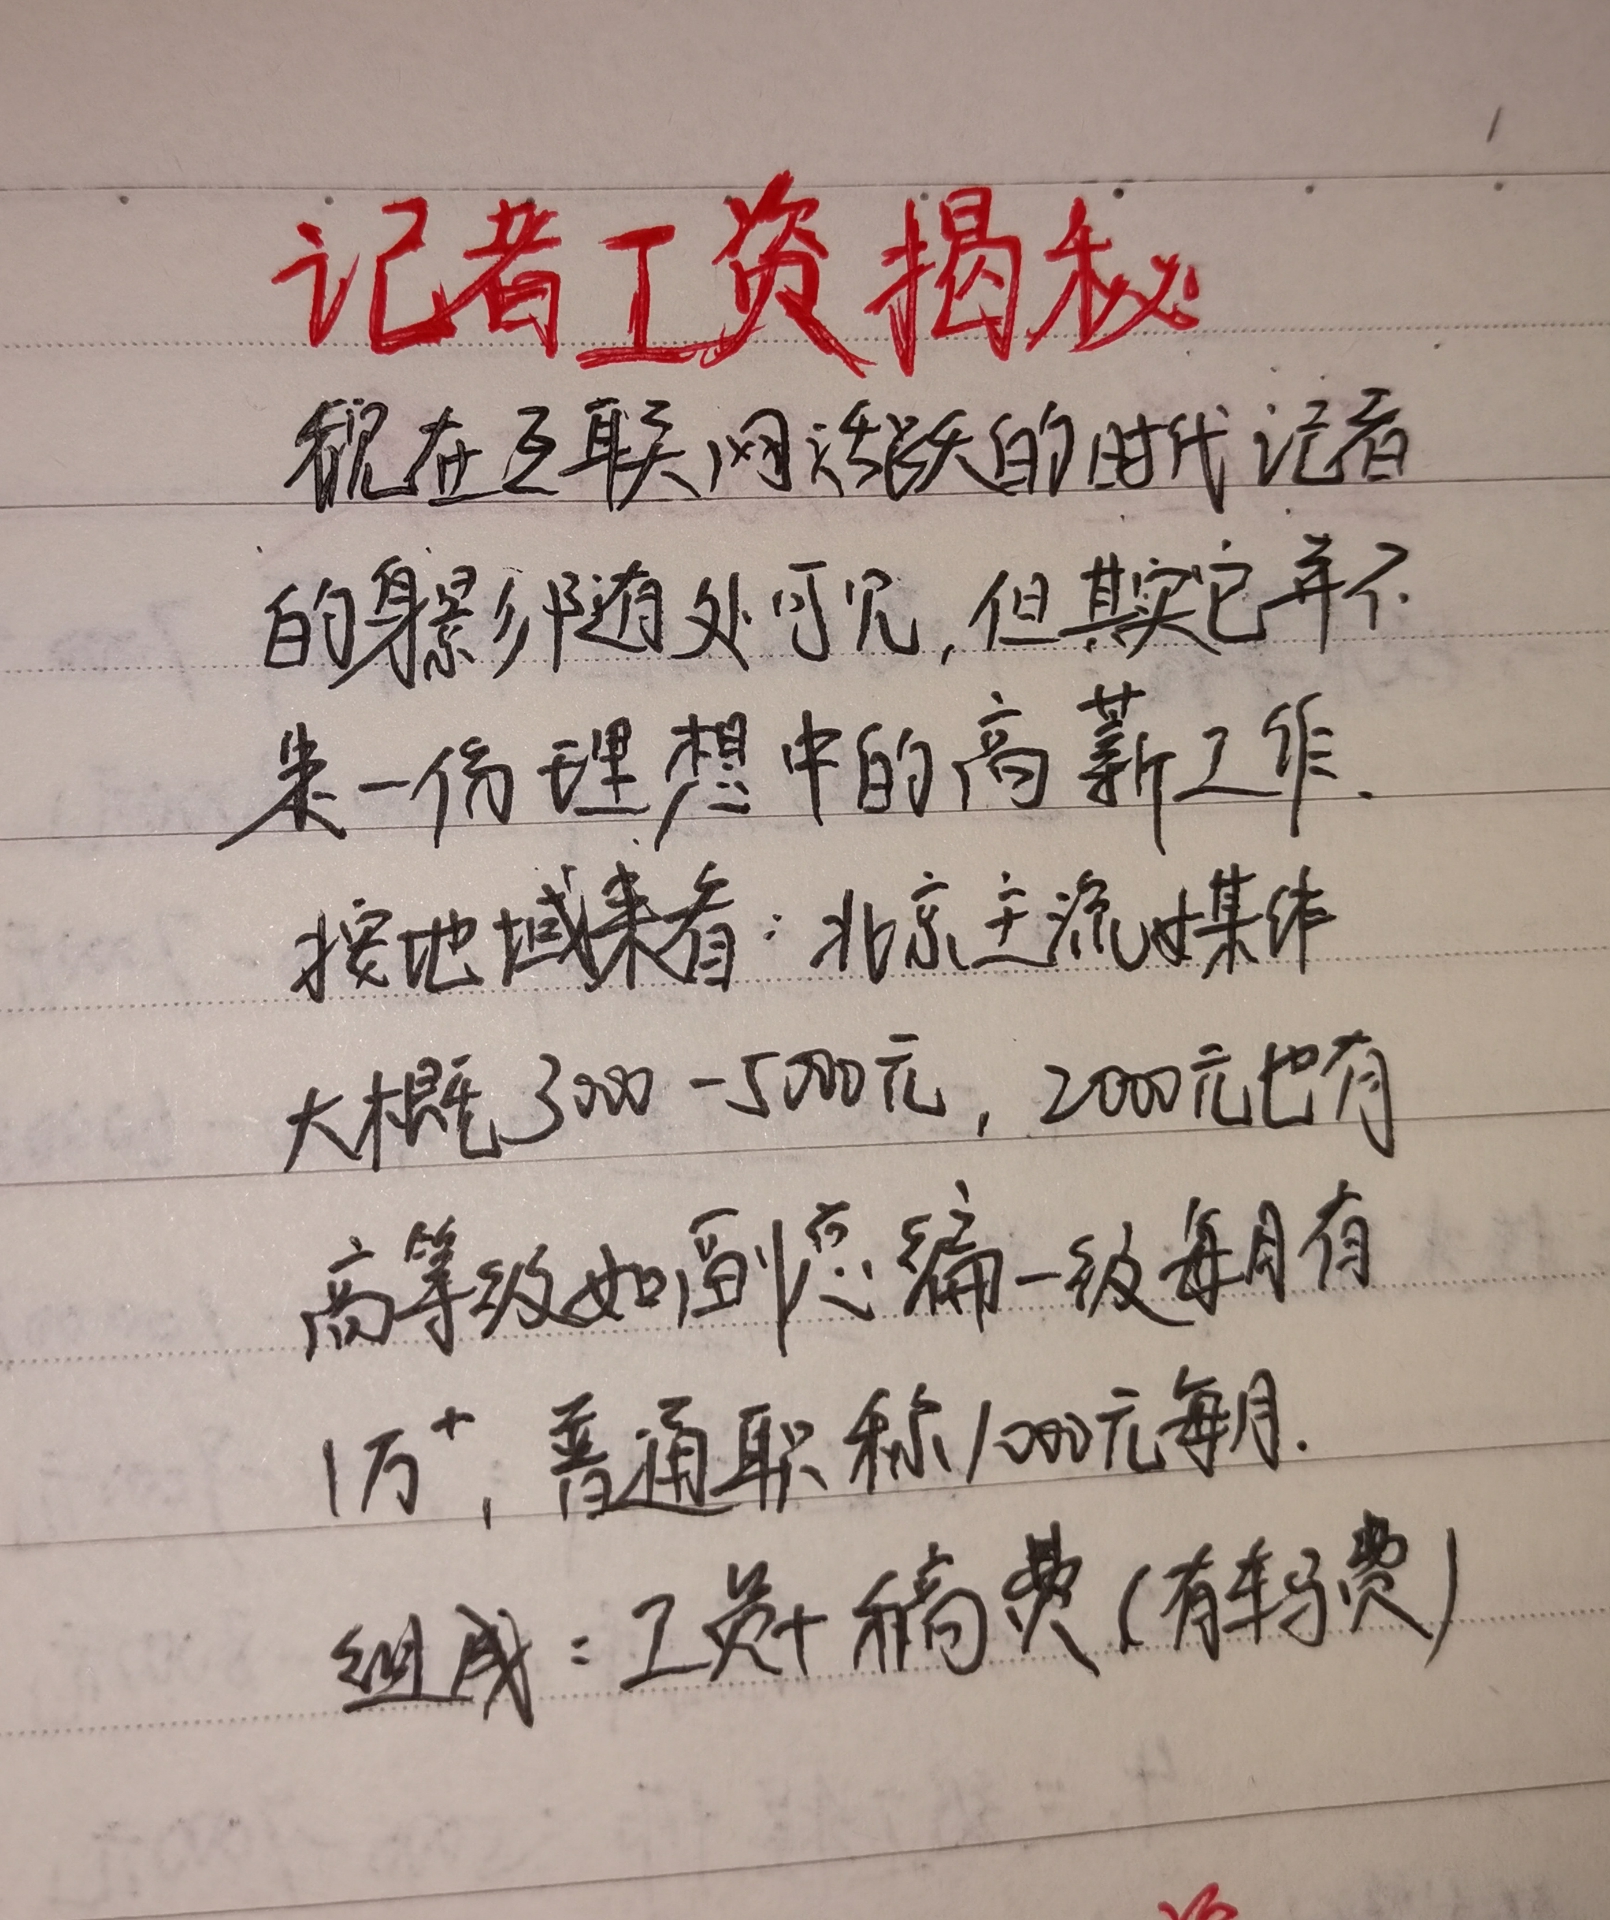 记者工资揭秘
现在互联网活跃的时代记者
的身影随处可见,但其实它并不
是一份理想中的高薪工作.
按地域来看:北京主流媒体
大概3000-5000元,2000元也有
高等级如副总编一级每月有
1万+,普通职称1000元每月.
组成:工资+稿费(有车马费)